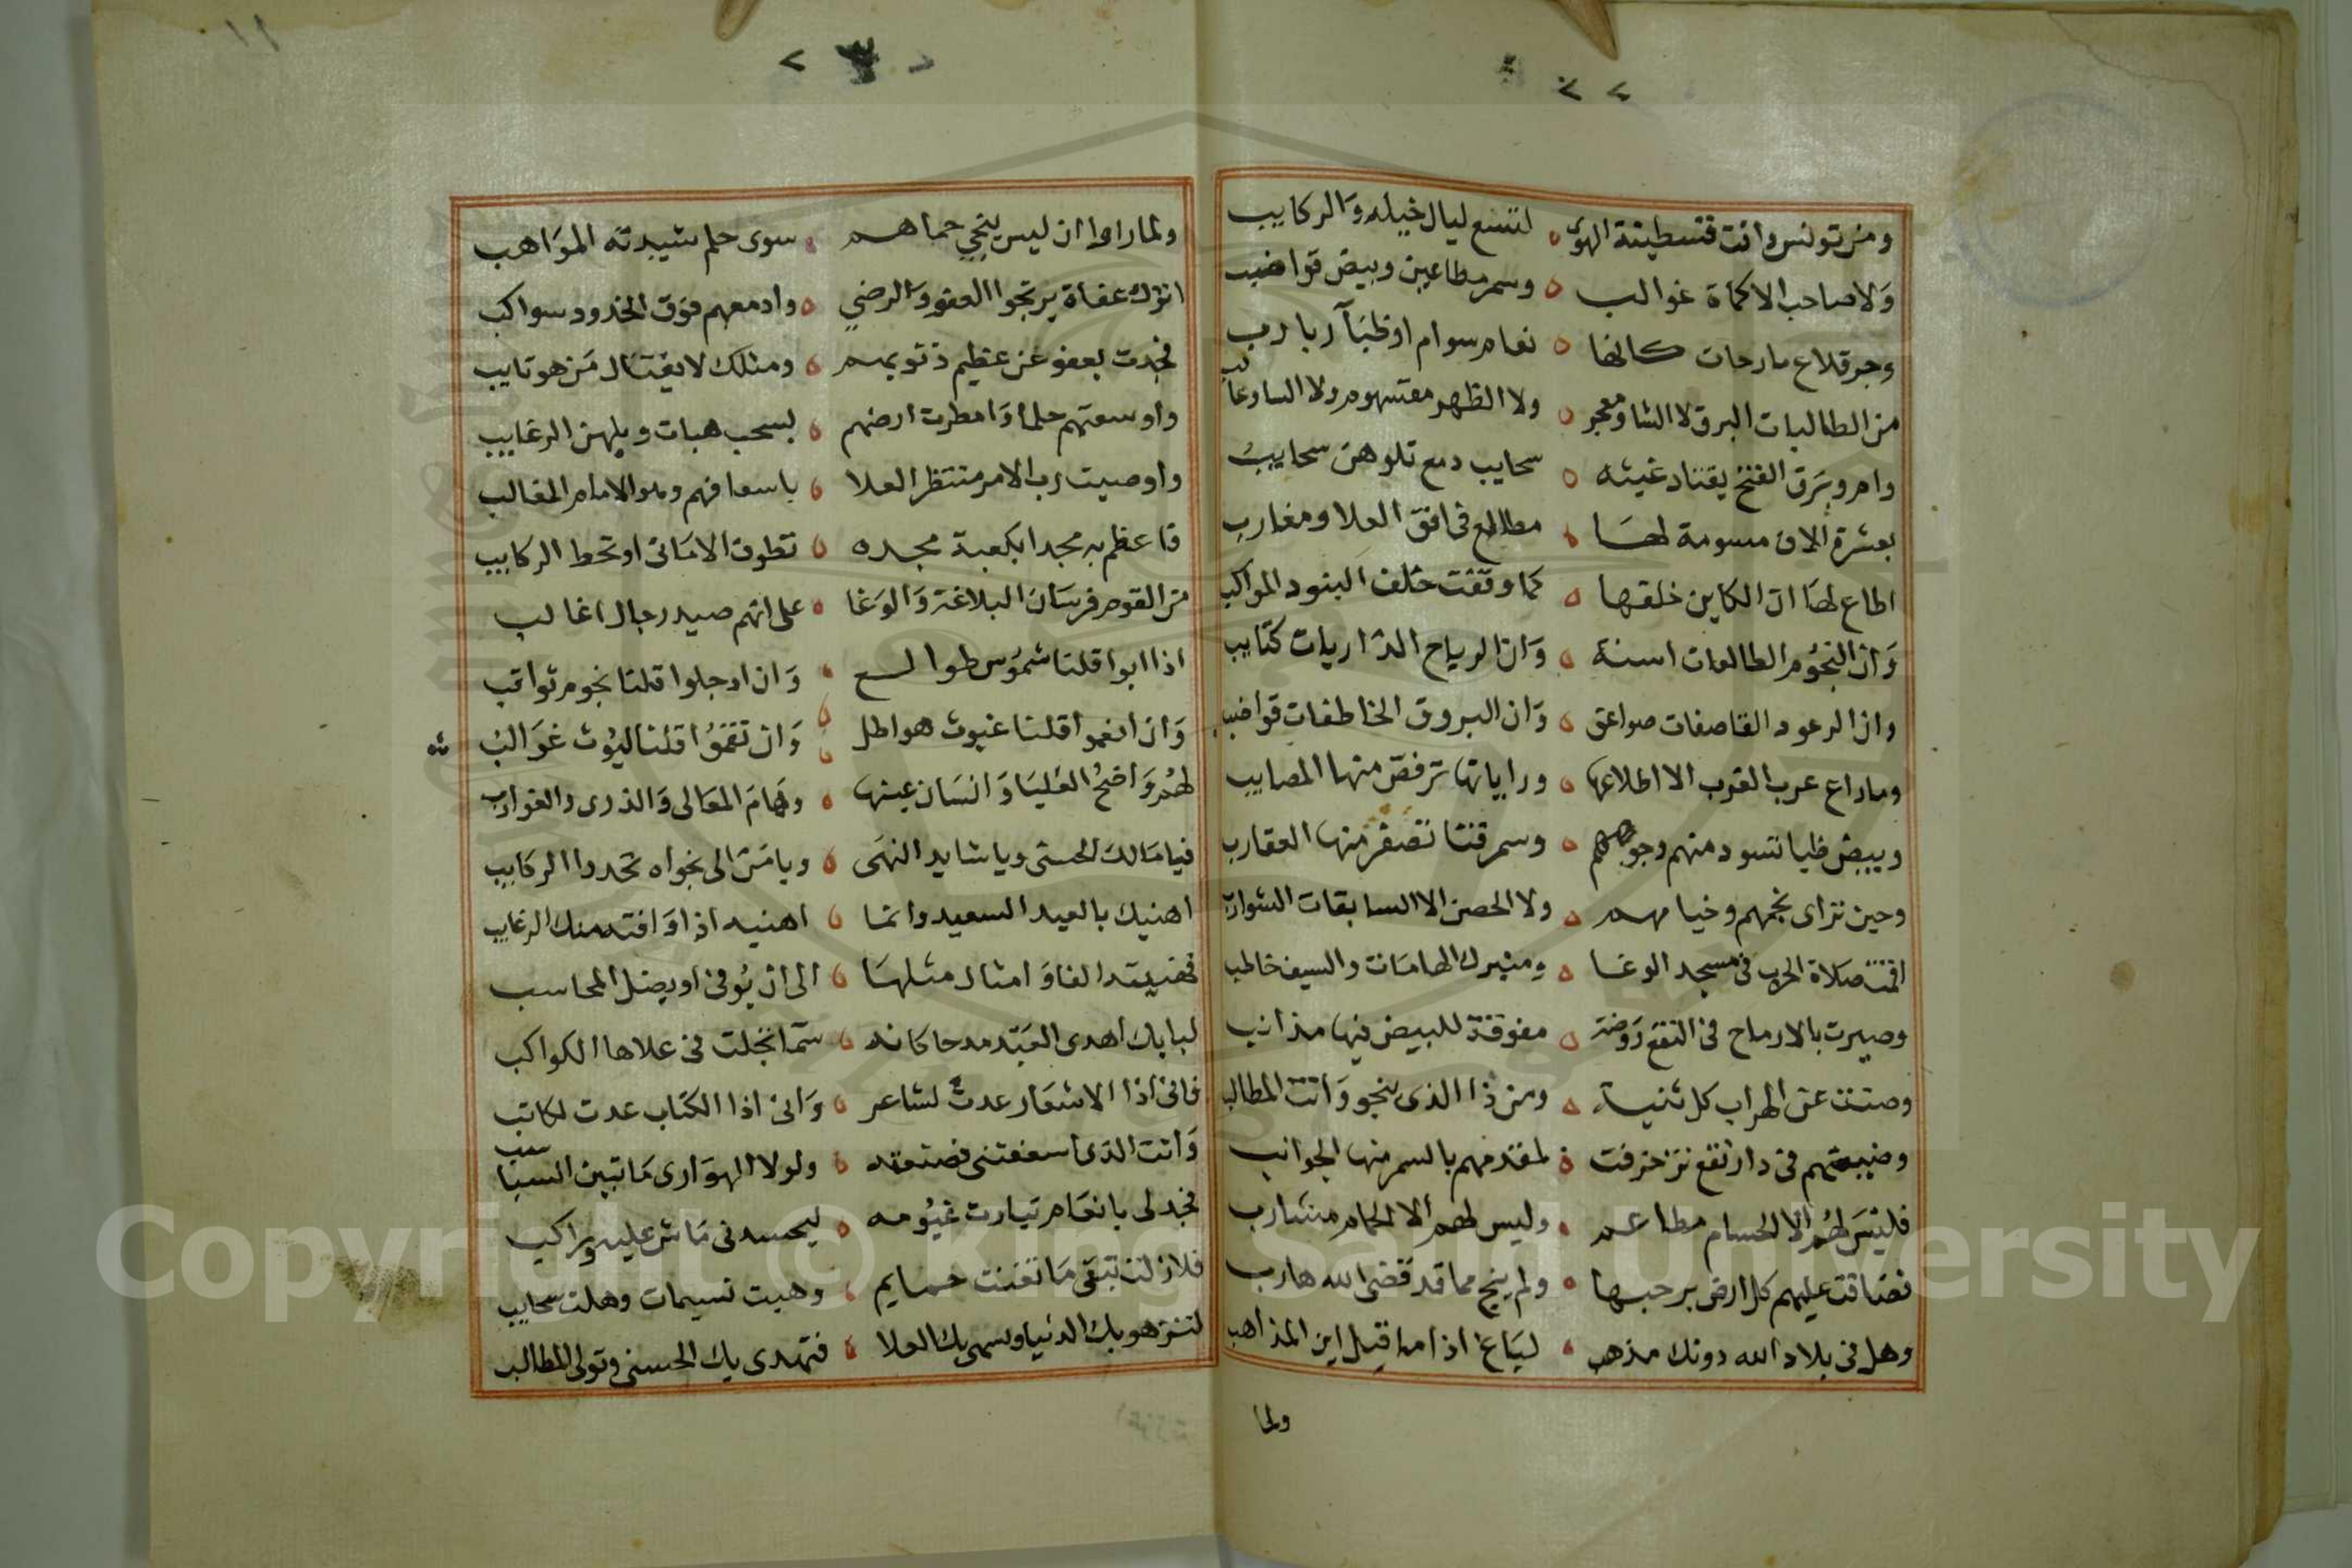 ومن تونس وافت قسطينة الهوى لتسع ليال خيله والركايب
ولا صاحب الاكماة غوالب وسمر مطاعين وبيض قواضب
وجر قلاع سارحات كانها نعام سوام او ظبآ ربارب
من الطالبات البرق لا الشاو معجر ولا الظهر مقسهوم ولا الساو عاب
وام وبرق الفتح يقتاد غيثه سحايب دمع تلوهن سحايب
بعشرة الاف مسومة لها مطالع في افق العلا ومغارب
اطاع لها ان الكاين خلفها كما وقفت خلف البنود المواكب
وان النجوم الطالعات اسنة وان الرياح الذاريات كتايب
وان الرعود القاصفات صواعق وان البروق الخاطفات قواضب
وما راع عرب القرب الا اطلاعها وراياتها ترفض منها المصايب
وبيض ظبا تسود منهم وجوههم وسمر قنا تصفر منها العقارب
وحين تراى نجمهم وخيامهم ولا الحصن الا السابقات الشوازب
اقمت صلاة الحرب في مسجد الوغا ومنبرك الهامات والسيف خاطب
وصيرت بالارماح في النقع روضة مفوقة للبيض فيها مذانب
وصتت عن الهراب كل ثنية ومن ذا الذي ينجو وانت المطالب
وضيعتهم في دار نقع تزخرفت لمقدمهم بالسمر منها الجوانب
فليس لهم الا الحسام مطاعم وليس لهم الا الحمام مشارب
فضاقت عليهم كل ارض برحبها ولم ينج مما قد قضى الله هارب
وهل في بلاد الله دونك مذهب لباغ اذا ما قيل اين المذاهب
ولما
ولما راوا ان ليس ينجي حماهم سوى حلم شيدته المواهب
اتوك عفاة يرتجوا العفو والرضي وادمعهم فوق الخدود سواكب
فجدت بعفو عن عظيم ذنوبهم ومثلك لا يغتال من هو تايب
واوسعتهم حلما وامطرت ارضهم بسحب هبات وبلهن الرغايب
واوصيت رب الامر منتظر العلا باسعافهم وهو الامام المغالب
فاعظم به مجدا بكعبة مجده تطوف الاماني او تحط الركايب
من القوم فرسان البلاغة والوغا على انهم صيد رجال اغالب
اذا ابوا قلنا شموس طوالع وان ادجلوا قلنا نجوم ثواقب
وان انعموا قلنا غيوث هواطل وان نقموا قلنا ليوث غوالب
لهم واضح العليا وانسان عينها وهام المعالي والذرى والغوارب
فيا مالك الحسنى ويا شايد النهى ويا من الى نجواه تحدوا الركايب
اهنيك بالعيد السعيد وانما اهنيه اذا وافته منك الرغايب
فهنيته الفا وامثال مثلها الى ان يوفى او يضل المحاسب
لبابك اهدى العبد مدحا كانه سما تجلت في علاها الكواكب
فاني اذا الاشعار عدت لشاعر واني اذا الكتاب عدت لكاتب
وانت الذي اسعفتني فصنعته ولولا الهوارى ما تبين السباسب
فجد لي بانعام تبارت غيومه ليحسدني ماش عليه وراكب
فلا زلت تبقى ما تغنت حمايم وهبت نسيمات وهلت سحايب
لتزهو بك الدنيا ويسمى بك العلا فتهدى بك الحسنى وتولى المطالب